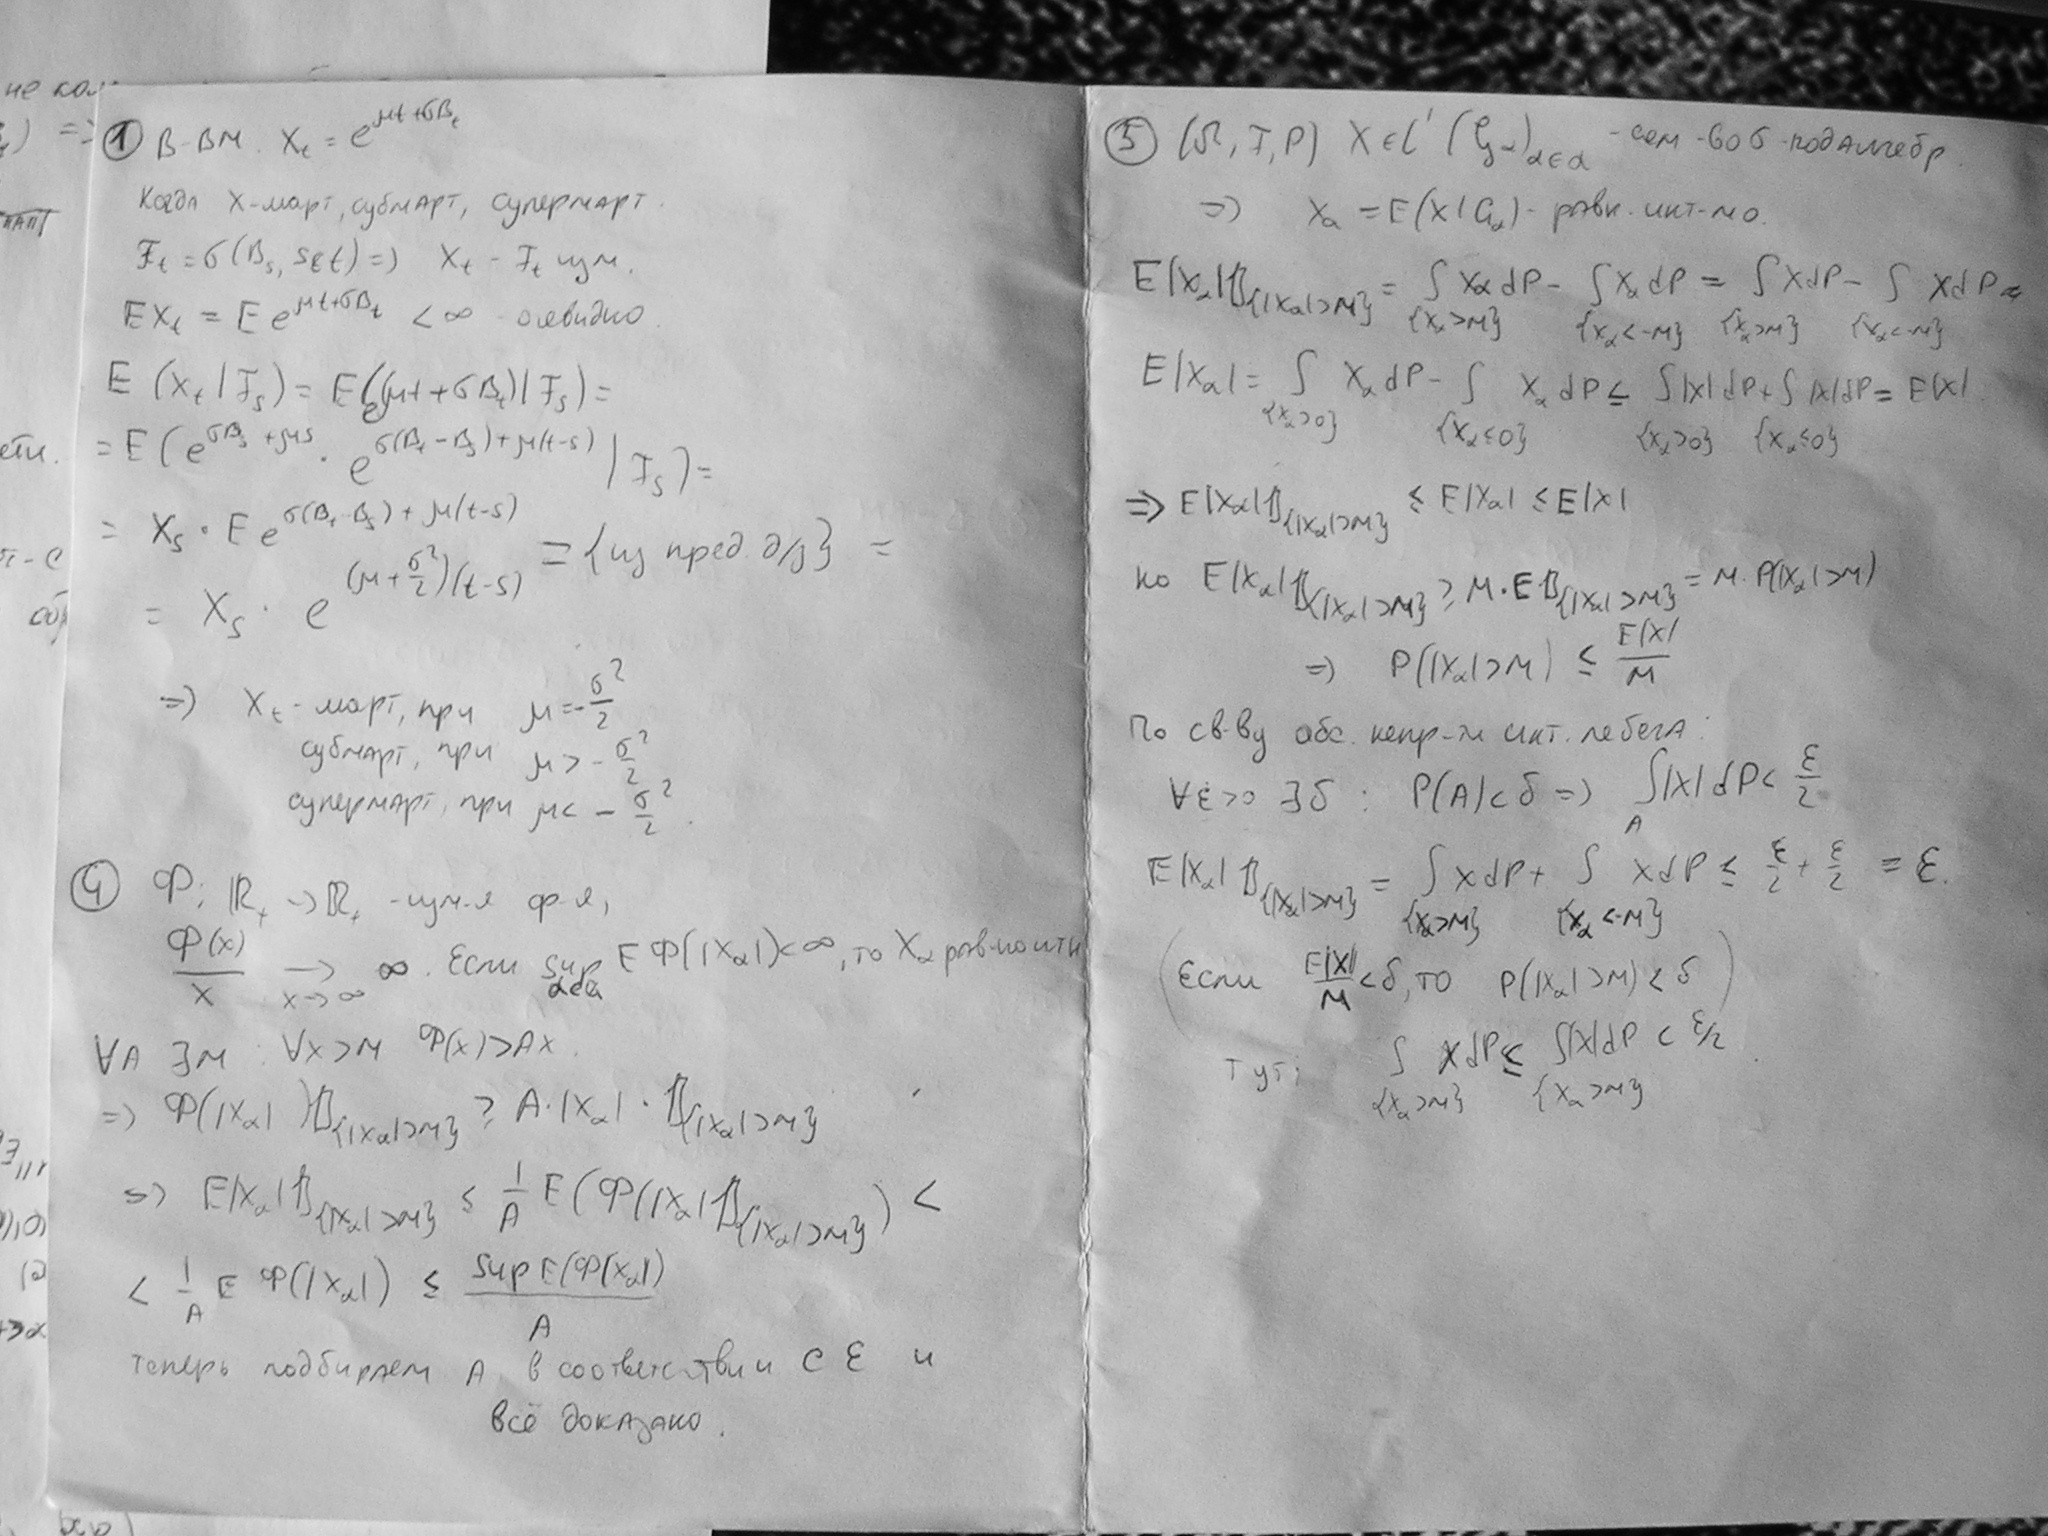 ① B - BM. X_t = e^{μt+σB_t}
Когда X-март, субмарт, супермарт.
F_t = σ(B_s, s≤t) => X_t - F_t изм.
EX_t = E e^{μt+σB_t} < ∞ - очевидно.
E (X_t | F_s) = E(e^{(μt+σB_t)} | F_s) =
= E (e^{σB_s+μs} · e^{σ(B_t-B_s)+μ(t-s)} | F_s) =
= X_s · E e^{σ(B_t-B_s)+μ(t-s)} = {из пред. д/з} =
= X_s · e^{(μ+σ²/2)(t-s)}
=> X_t - март, при μ = -σ²/2
субмарт, при μ > -σ²/2
супермарт, при μ < -σ²/2.
④ Φ: ℝ₊ -> ℝ₊ - изм-я ф-я,
Φ(x)/x →_{x->∞} ∞. Если sup_{α∈a} E Φ(|X_α|) < ∞, то X_α рав-но инт
∀A ∃M : ∀x>M Φ(x)>Ax.
=> Φ(|X_α|)𝟙_{{|X_α|>M}} ≥ A·|X_α|·𝟙_{{|X_α|>M}}
=> E|X_α|𝟙_{{|X_α|>M}} ≤ 1/A E(Φ(|X_α|𝟙_{{|X_α|>M}}) <
< 1/A E Φ(|X_α|) ≤ sup E(Φ(X_α|)/A
теперь подбираем A в соответствии с ε и
всё доказано.
⑤ (Ω, F, P) X∈L¹ (G_α)_{α∈a} - сем-во σ-подалгебр.
=> X_α = E(X|G_α) - равн. инт-мо.
E|X_α|𝟙_{{|X_α|>M}} = ∫_{{X_α>M}} X_α dP - ∫_{{X_α<-M}} X_α dP = ∫_{{X_α>M}} X dP - ∫_{{X_α<-M}} X dP =
E|X_α| = ∫_{{X_α>0}} X_α dP - ∫_{{X_α≤0}} X_α dP ≤ ∫_{{X_α>0}} |X| dP + ∫_{{X_α≤0}} |X| dP = E|X|.
=> E|X_α|𝟙_{{|X_α|>M}} ≤ E|X_α| ≤ E|X|
но E|X_α|𝟙_{{|X_α|>M}} ≥ M·E𝟙_{{|X_α|>M}} = M·P(|X_α|>M)
=> P(|X_α|>M) ≤ E|X|/M
По св-ву абс. непр-ти инт. лебега:
∀ε>0 ∃δ : P(A)<δ => ∫_A |X| dP < ε/2
E|X_α|𝟙_{{|X_α|>M}} = ∫_{{X_α>M}} X dP + ∫_{{X_α<-M}} X dP ≤ ε/2 + ε/2 = ε.
(Если E|X|/M < δ, то P(|X_α|>M) < δ)
Тут: ∫_{{X_α>M}} X dP ≤ ∫_{{X_α>M}} |X| dP < ε/2.